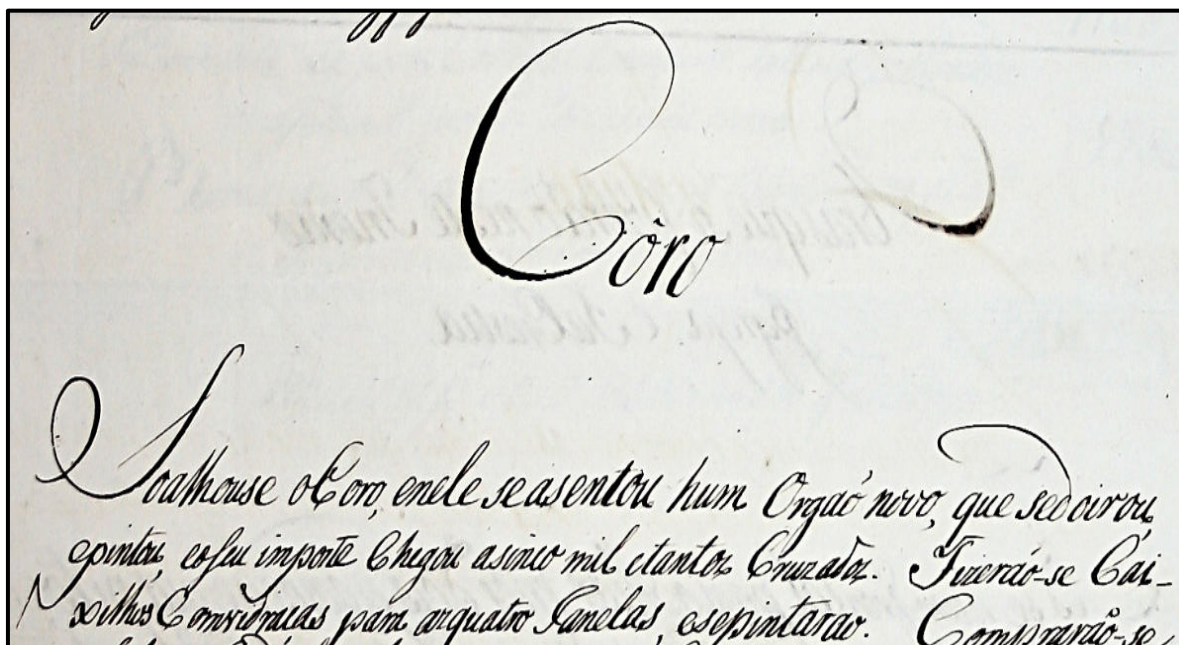 Côro
Soalhouse o Coro, enele seasentou hum Orgaó novo, que sedoirou,
epintou, eoseu importe Chegou asinco mil etantos Cruzados. Fizeraó-se Cai-
xilhos Comvidraças para asquatro Janelas, esepintarao. Compraraõ-se,